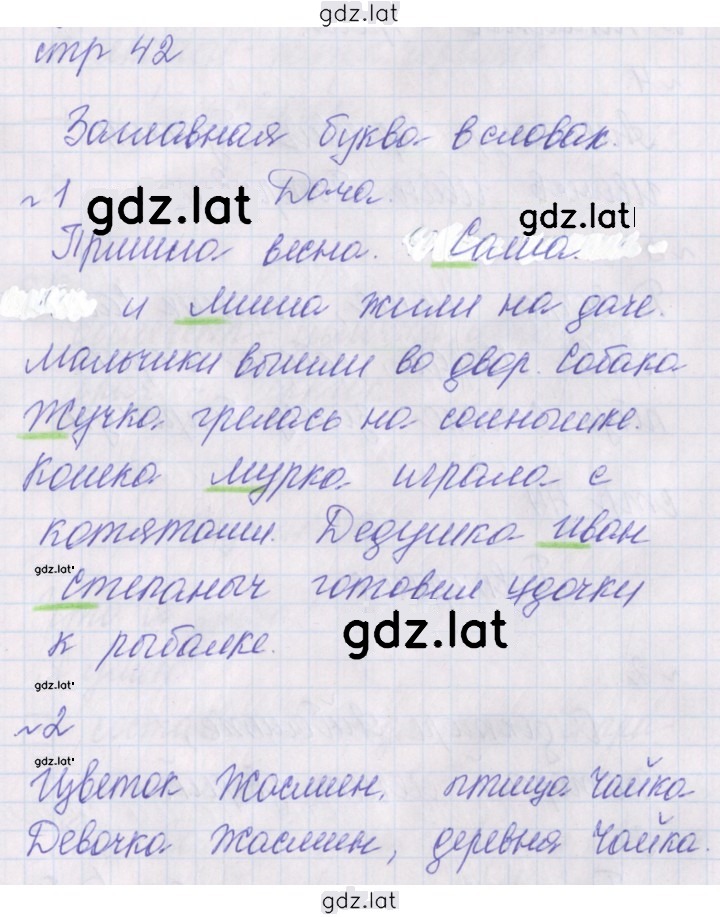 gdz.lat
стр 42
Заглавная буква в словах.
№1 Дача.
gdz.lat gdz.lat
Пришла весна. Саша
и Миша жили на даче.
Мальчики вышли во двор. Собака
Жучка грелась на солнышке.
Кошка Мурка играла с
котятами. Дедушка Иван
gdz.lat
Степаныч готовил удочки
gdz.lat
к рыбалке.
gdz.lat
№2
gdz.lat
Цветок Жасмин, птица Чайка
Девочка Жасмин, деревня Чайка.
gdz.lat